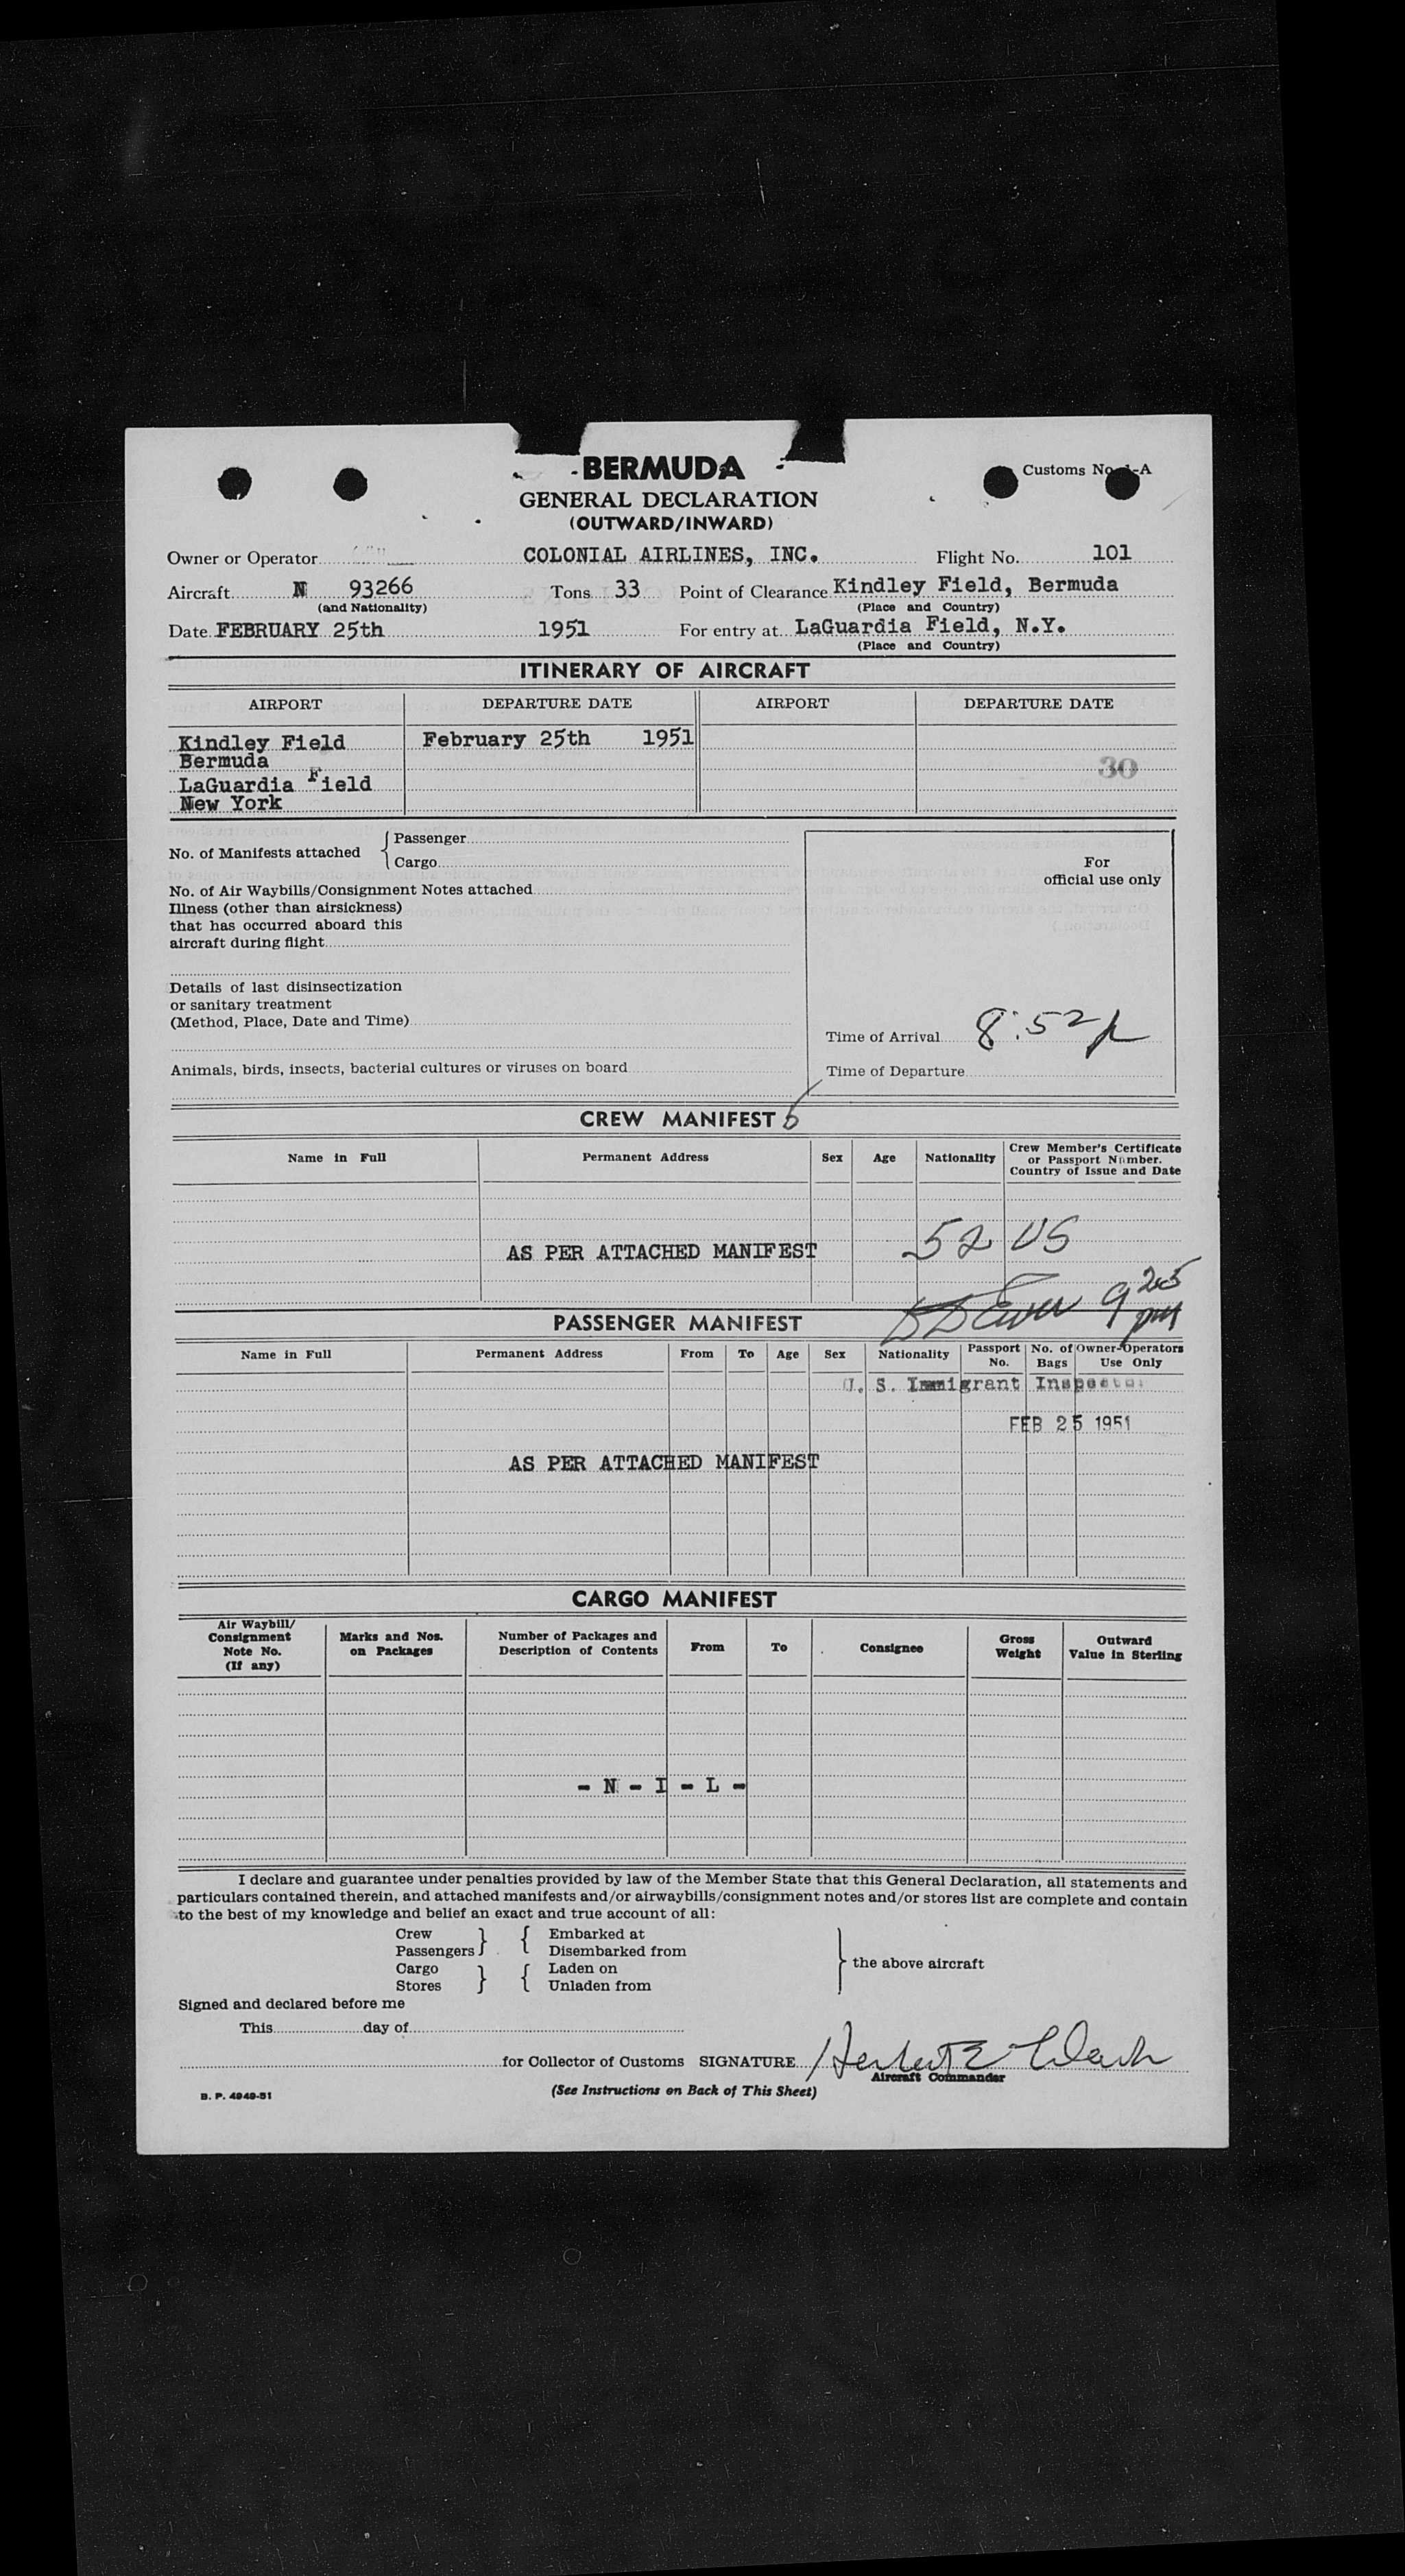 BERMUDA
Customs No. 1-A
GENERAL DECLARATION
(OUTWARD/INWARD)
Owner or Operator COLONIAL AIRLINES, INC. Flight No. 101
Aircraft N 93266 Tons 33 Point of Clearance Kindley Field, Bermuda
(and Nationality) (Place and Country)
Date FEBRUARY 25th 1951 For entry at LaGuardia Field, N.Y.
(Place and Country)
ITINERARY OF AIRCRAFT
AIRPORT DEPARTURE DATE AIRPORT DEPARTURE DATE
Kindley Field February 25th 1951
Bermuda
30
LaGuardia Field
New York
No. of Manifests attached { Passenger
Cargo
For
official use only
No. of Air Waybills/Consignment Notes attached
Illness (other than airsickness)
that has occurred aboard this
aircraft during flight
Details of last disinsectization
or sanitary treatment
(Method, Place, Date and Time)
Time of Arrival 8:52 p
Animals, birds, insects, bacterial cultures or viruses on board
Time of Departure
CREW MANIFEST 5
Name in Full Permanent Address Sex Age Nationality Crew Member's Certificate or Passport Number. Country of Issue and Date
52 US
AS PER ATTACHED MANIFEST
9 25 pm
PASSENGER MANIFEST
Name in Full Permanent Address From To Age Sex Nationality Passport No. No. of Bags Owner-Operators Use Only
U. S. Immigrant Inspector
FEB 25 1951
AS PER ATTACHED MANIFEST
CARGO MANIFEST
Air Waybill/ Consignment Note No. (If any) Marks and Nos. on Packages Number of Packages and Description of Contents From To Consignee Gross Weight Outward Value in Sterling
- N - I - L -
I declare and guarantee under penalties provided by law of the Member State that this General Declaration, all statements and
particulars contained therein, and attached manifests and/or airwaybills/consignment notes and/or stores list are complete and contain
to the best of my knowledge and belief an exact and true account of all:
Crew Embarked at
Passengers Disembarked from
the above aircraft
Cargo Laden on
Stores Unladen from
Signed and declared before me
This day of
for Collector of Customs SIGNATURE Herbert E Clark
Aircraft Commander
B. P. 4949-51
(See Instructions on Back of This Sheet)